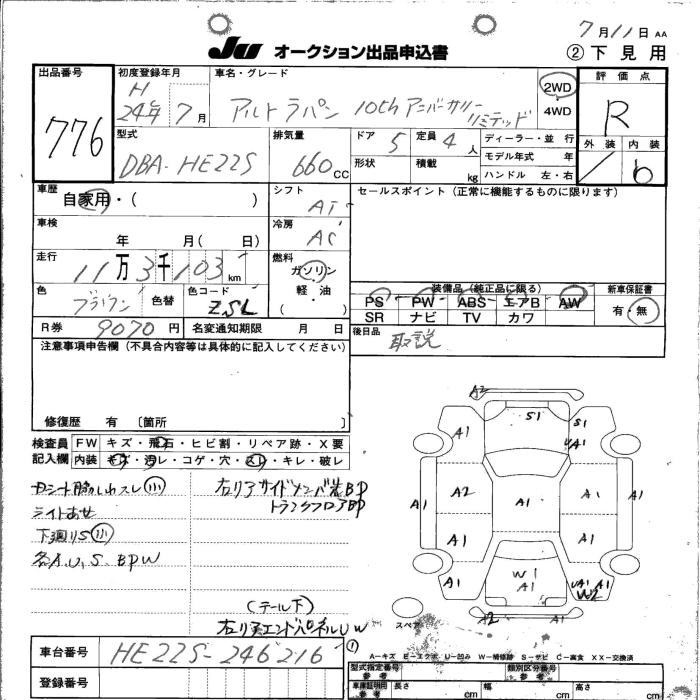 7月11日 AA
JU オークション出品申込書
② 下見用
出品番号
776
初度登録年月
H
24年 7月
車名・グレード
アルトラパン 10thアニバーサリー
リミテッド
2WD
4WD
評価点
R
外装 内装
/ b
型式
DBA-HE22S
排気量
660 CC
ドア 5
定員 4人
形状
積載 kg
ディーラー・並行
モデル年式 年
ハンドル 左・右
車歴
自家用・( )
シフト
AT
セールスポイント (正常に機能するものに限ります)
車検
年 月( 日)
冷房
AC
走行
11万3千103 km
燃料
ガソリン
軽・油
( )
色
ブラウン
色替
色コード
ZSL
装備品 (純正品に限る)
PS PW ABS エアB AW
SR ナビ TV カワ
新車保証書
有・無
R券 9070円
名変通知期限 月 日
後日品
取説
注意事項申告欄 (不具合内容等は具体的に記入してください)
修復歴 有 〔箇所 〕
検査員
記入欄
FW キズ・飛石・ヒビ割・リペア跡・X要
内装 キズ・汚レ・コゲ・穴・スレ・キレ・破レ
Dシート脇しわスレ(小)
ライトあせ
下廻りS(小)
各A,U,S,BPW
左リアサイドメンバ先BP
トランクフロアBP
(テール下)
左リアエンドパネルUW
A2
S1
A1
S1
UA1
A1
A2
A1
A1
A1
A1
A1
A1
W1
A1
UA1 A1
W2
A2
A1
スペア
A－キズ E－エクボ U－凹み W－補修跡 S－サビ C－腐食 XX－交換済
車台番号
HE22S-246216
登録番号
①
型式指定番号
参考
類別区分番号
参考
車庫証明用
参考
長さ cm
幅 cm
高さ cm